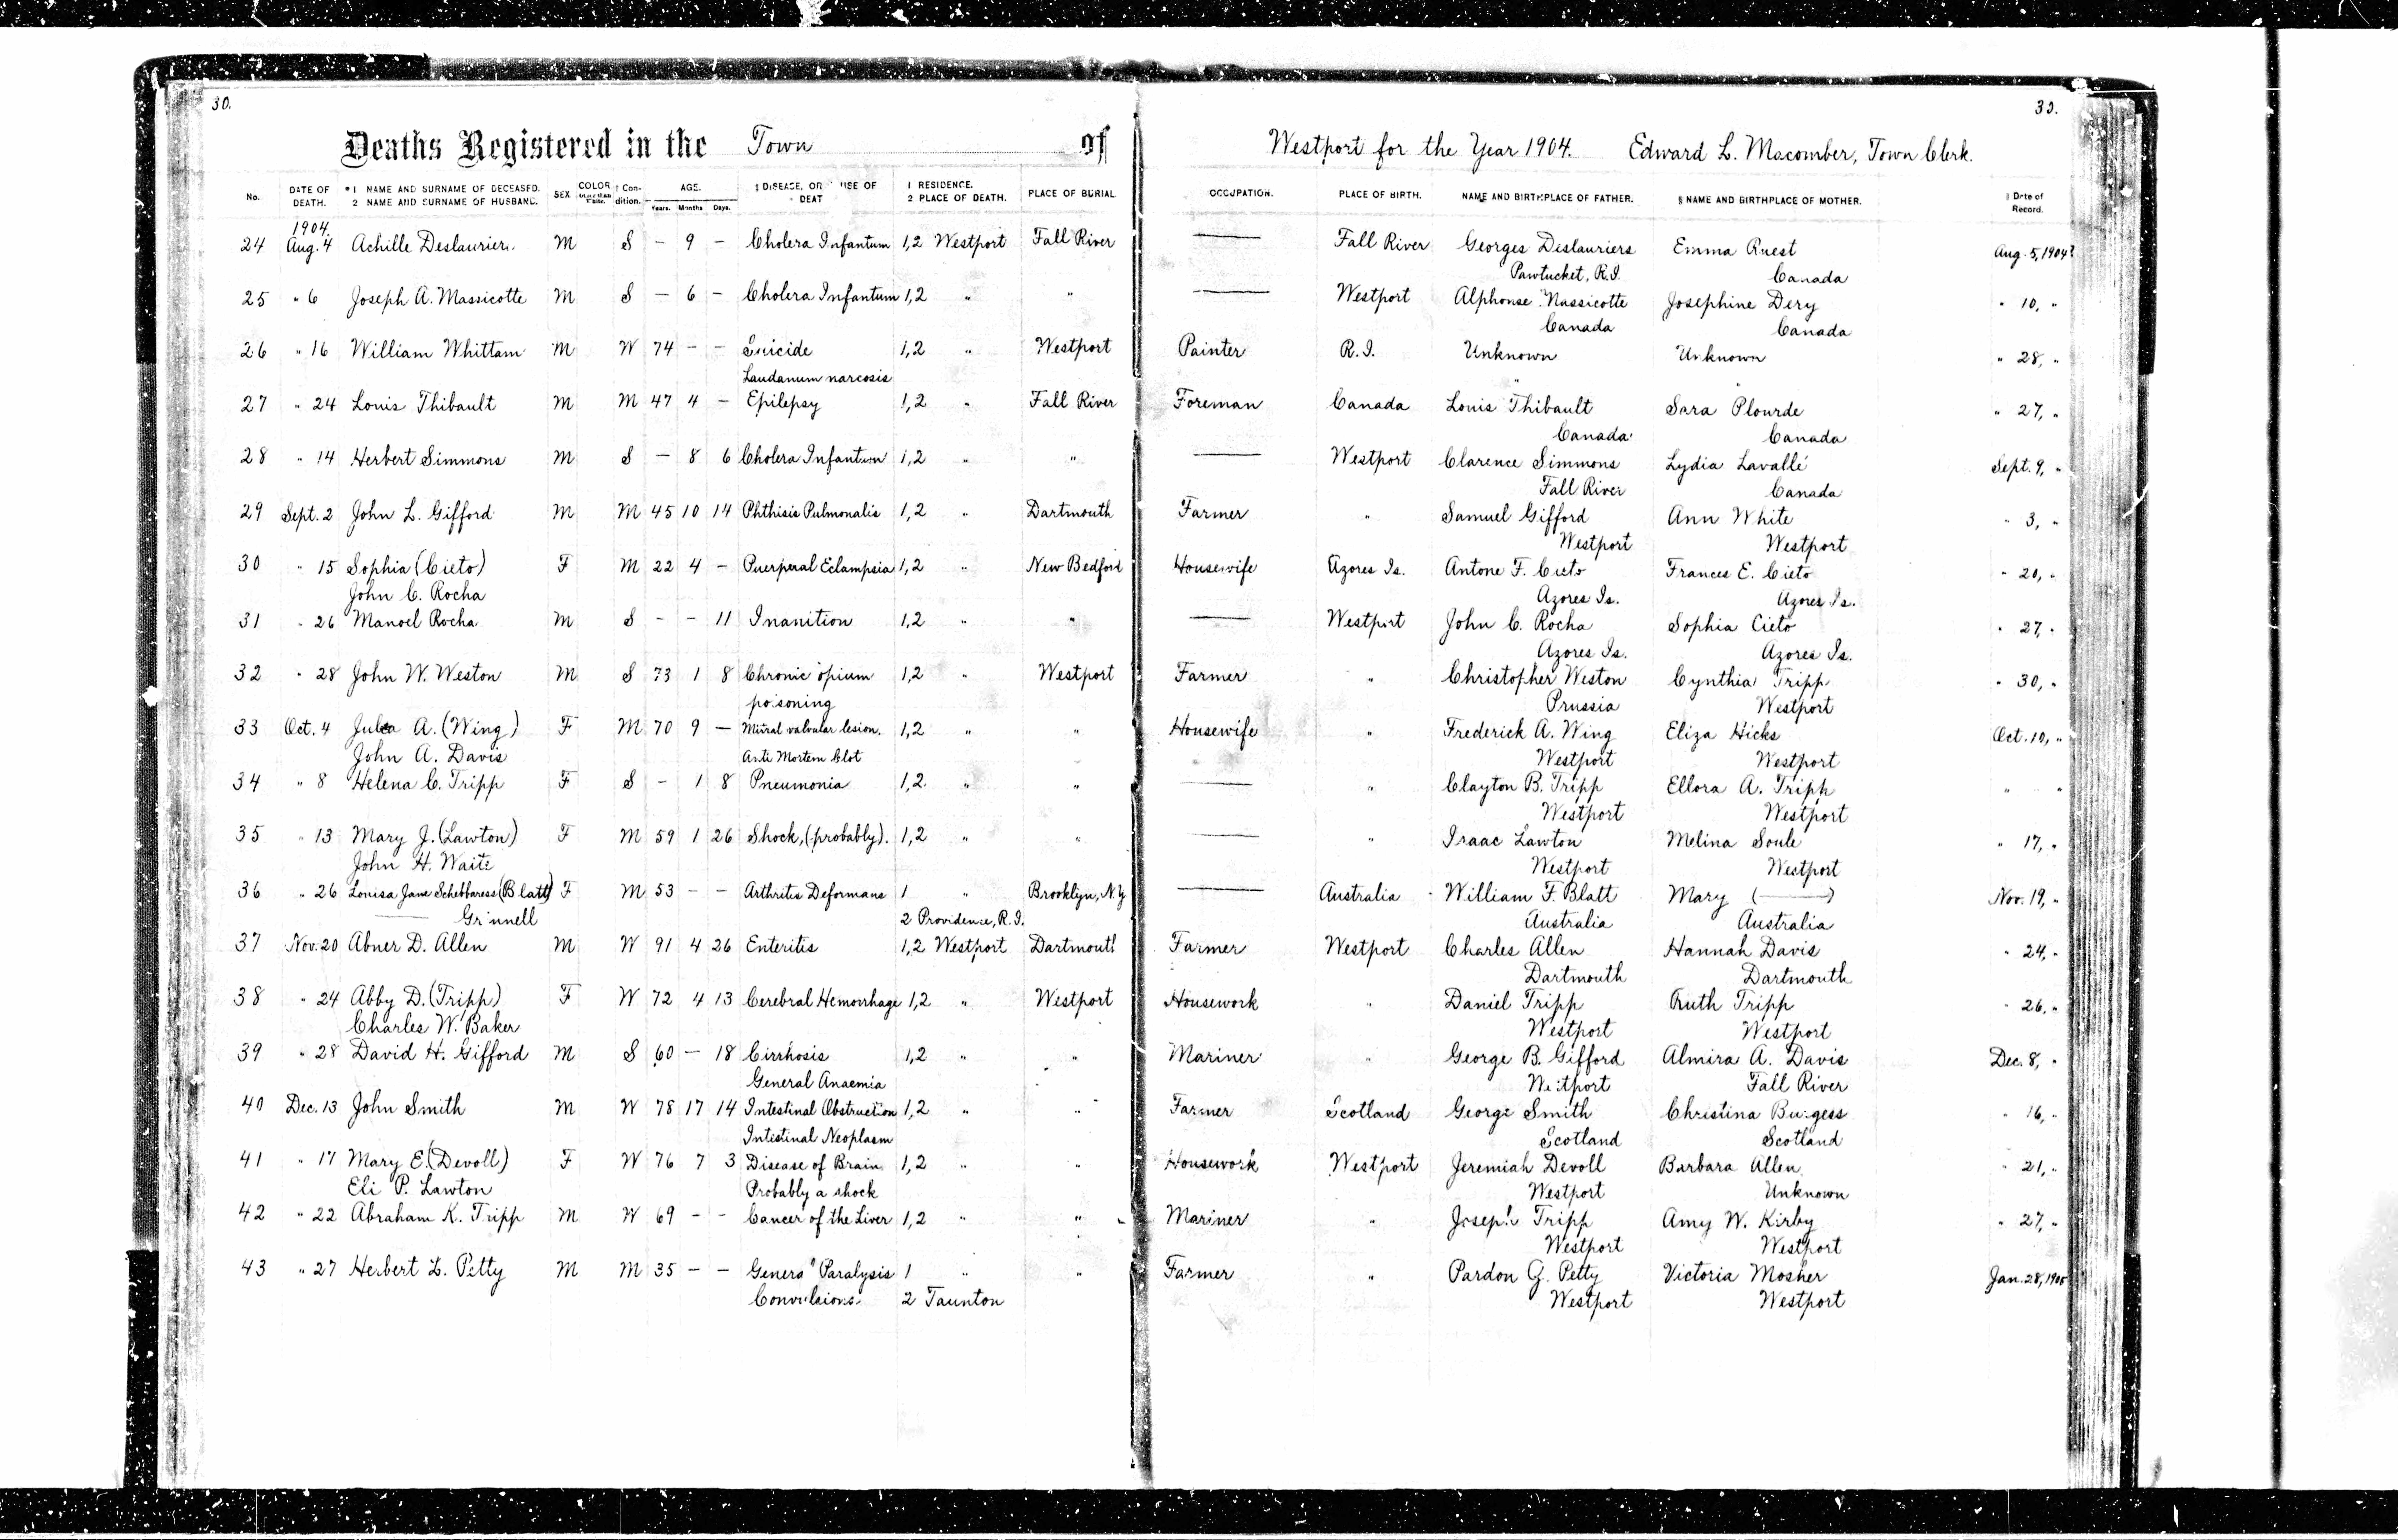 30. 30.
Deaths Registered in the Town of Westport for the Year 1904. Edward L. Macomber, Town Clerk.
No. DATE OF DEATH. *1 NAME AND SURNAME OF DECEASED. 2 NAME AND SURNAME OF HUSBAND. SEX COLOR † Condition. AGE. Years. Months Days. ‡ DISEASE, OR USE OF DEAT 1 RESIDENCE. 2 PLACE OF DEATH. PLACE OF BURIAL OCCUPATION. PLACE OF BIRTH. NAME AND BIRTHPLACE OF FATHER. § NAME AND BIRTHPLACE OF MOTHER. Date of Record.
1904.
24 Aug. 4 Achille Deslaurier. M S - 9 - Cholera Infantum 1,2 Westport Fall River — Fall River Georges Deslauriers Emma Ruest Aug. 5, 1904
Pawtucket, R.I. Canada
25 " 6 Joseph A. Massicotte M S - 6 - Cholera Infantum 1,2 " " — Westport Alphonse Massicotte Josephine Dery " 10, "
Canada Canada
26 " 16 William Whittam M W 74 - - Suicide 1,2 " Westport Painter R.I. Unknown Unknown " 28, "
Laudanum narcosis " "
27 " 24 Louis Thibault M M 47 4 - Epilepsy 1,2 " Fall River Foreman Canada Louis Thibault Sara Plourde " 27, "
Canada Canada
28 " 14 Herbert Simmons M S - 8 6 Cholera Infantum 1,2 " " — Westport Clarence Simmons Lydia Lavallé Sept. 9, "
Fall River Canada
29 Sept. 2 John L. Gifford M M 45 10 14 Phthisis Pulmonalis 1,2 " Dartmouth Farmer " Samuel Gifford Ann White " 3, "
Westport Westport
30 " 15 Sophia (Cieto) F M 22 4 - Puerperal Eclampsia 1,2 " New Bedford Housewife Azores Is. Antone F. Cieto Frances E. Cieto " 20, "
John C. Rocha Azores Is. Azores Is.
31 " 26 Manoel Rocha M S - - 11 Inanition 1,2 " " — Westport John C. Rocha Sophia Cieto " 27, "
Azores Is. Azores Is.
32 " 28 John W. Weston M S 73 1 8 Chronic opium 1,2 " Westport Farmer " Christopher Weston Cynthia Tripp " 30, "
poisoning Prussia Westport
33 Oct. 4 Julia A. (Wing) F M 70 9 - Mitral valvular lesion. 1,2 " " Housewife " Frederick A. Wing Eliza Hicks Oct. 10, "
John A. Davis Anti Mortem Clot Westport Westport
34 " 8 Helena C. Tripp F S - 1 8 Pneumonia 1,2. " " — " Clayton B. Tripp Ellora A. Tripp " "
Westport Westport
35 " 13 Mary J. (Lawton) F M 59 1 26 Shock, (probably). 1,2 " " — " Isaac Lawton Melina Soule " 17, "
John H. Waite Westport Westport
36 " 26 Louisa Jane (Blatt) F M 53 - - Arthritis Deformans 1 " Brooklyn, N.Y — Australia William F. Blatt Mary (—) Nov. 19, "
— Grinnell 2 Providence, R.I. Australia Australia
37 Nov. 20 Abner D. Allen M W 91 4 26 Enteritis 1,2 Westport Dartmouth Farmer Westport Charles Allen Hannah Davis " 24, "
Dartmouth Dartmouth
38 " 24 Abby D. (Tripp) F W 72 4 13 Cerebral Hemorrhage 1,2 " Westport Housework " Daniel Tripp Ruth Tripp " 26, "
Charles W. Baker Westport Westport
39 " 28 David H. Gifford M S 60 - 18 Cirrhosis 1,2 " " Mariner " George B. Gifford Almira A. Davis Dec. 8, "
General Anaemia Westport Fall River
40 Dec. 13 John Smith M W 78 17 14 Intestinal Obstruction 1,2 " " Farmer Scotland George Smith Christina Burgess " 16, "
Intestinal Neoplasm Scotland Scotland
41 " 17 Mary E. (Devoll) F W 76 7 3 Disease of Brain 1,2 " " Housework Westport Jeremiah Devoll Barbara Allen " 21, "
Eli P. Lawton Probably a shock Westport Unknown
42 " 22 Abraham K. Tripp M W 69 - - Cancer of the Liver 1,2 " " Mariner " Joseph Tripp Amy W. Kirby " 27, "
Westport Westport
43 " 27 Herbert L. Petty M M 35 - - General Paralysis 1 " " Farmer " Pardon G. Petty Victoria Mosher Jan. 28, 1905
Convulsions. 2 Taunton Westport Westport